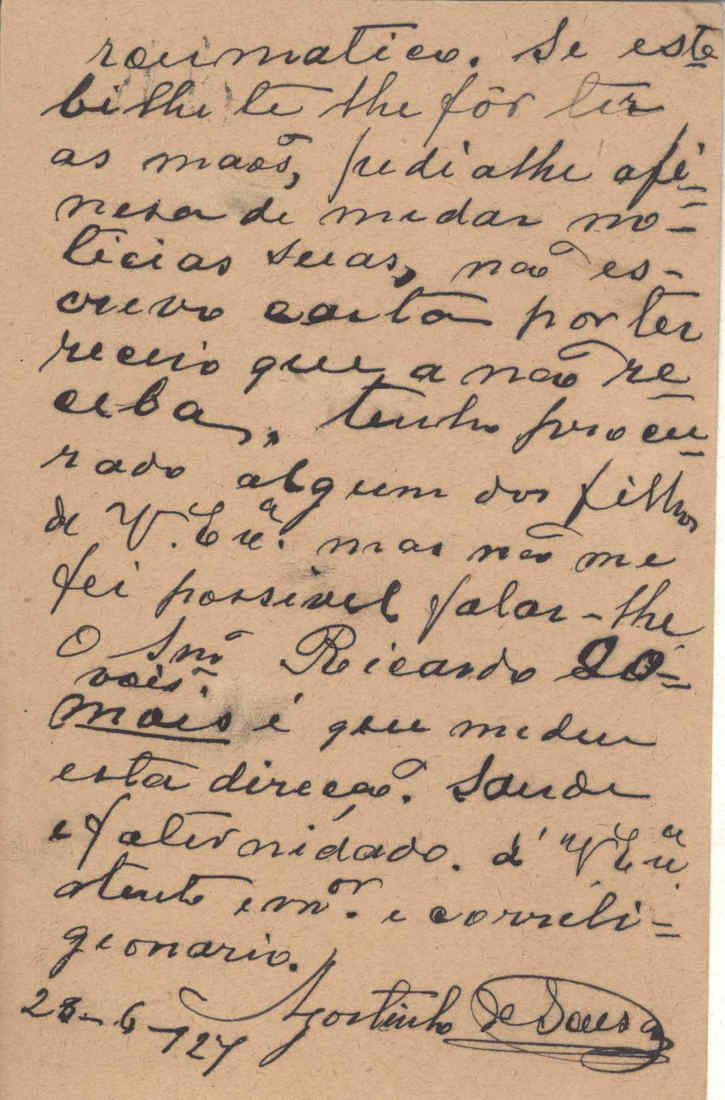 roumatico. Se este
bilhete lhe fôr ter
as maõs, pedialhe afi-
nesa de medar no-
ticias suas, naõ es-
crevo carta por ter
receio que a naõ re-
ceba, tenho procu-
rado algum dos filhos
de V. Exª. mas naõ me
foi possivel falar-lhe
O Snr Ricardo
vais.
mais é que medeu
esta direcaõ. Saude
e faternidade. d' V Exª.
atento e mor. e correli-
geonario.
Agostinho de Sousa
28-6-927